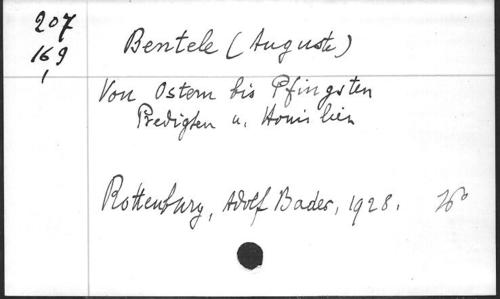 207
169
1
Bentele (Auguste)
Von Ostern bis Pfingsten
Predigten u. Homilien
Rottenburg, Adolf Bader, 1928. 16º